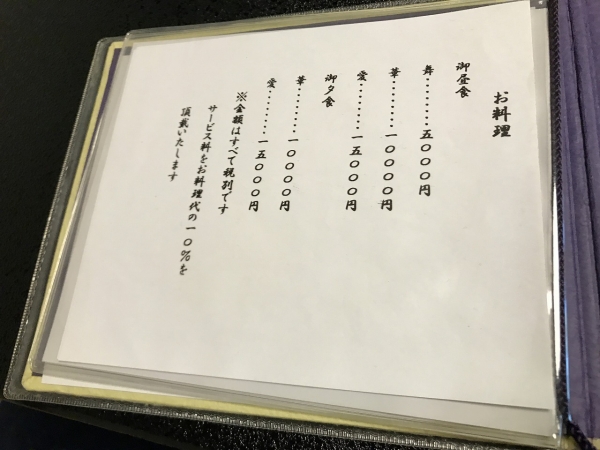 お料理
御昼食
舞・・・・・・・・五〇〇〇円
華・・・・・・・・一〇〇〇〇円
愛・・・・・・・・一五〇〇〇円
御夕食
華・・・・・・・・一〇〇〇〇円
愛・・・・・・・・一五〇〇〇円
※金額はすべて税別です
サービス料をお料理代の一〇%を
頂戴いたします